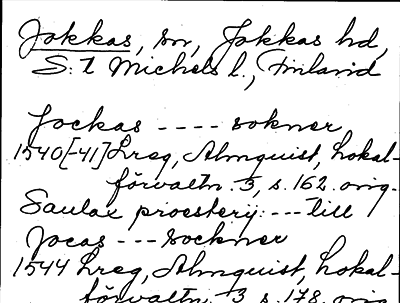 Jokkas, sn, Jokkas hd,
S:t Michels l., Finland
Jockas ---- sokner
1540[-41] Lreg, Almquist, Lokal-
förvaltn. 3, s. 162. orig.
Saulax proestery: --- till
Jocas --- sockner
1544 Lreg, Almquist, Lokal-
förvaltn. 3 s. 178. orig